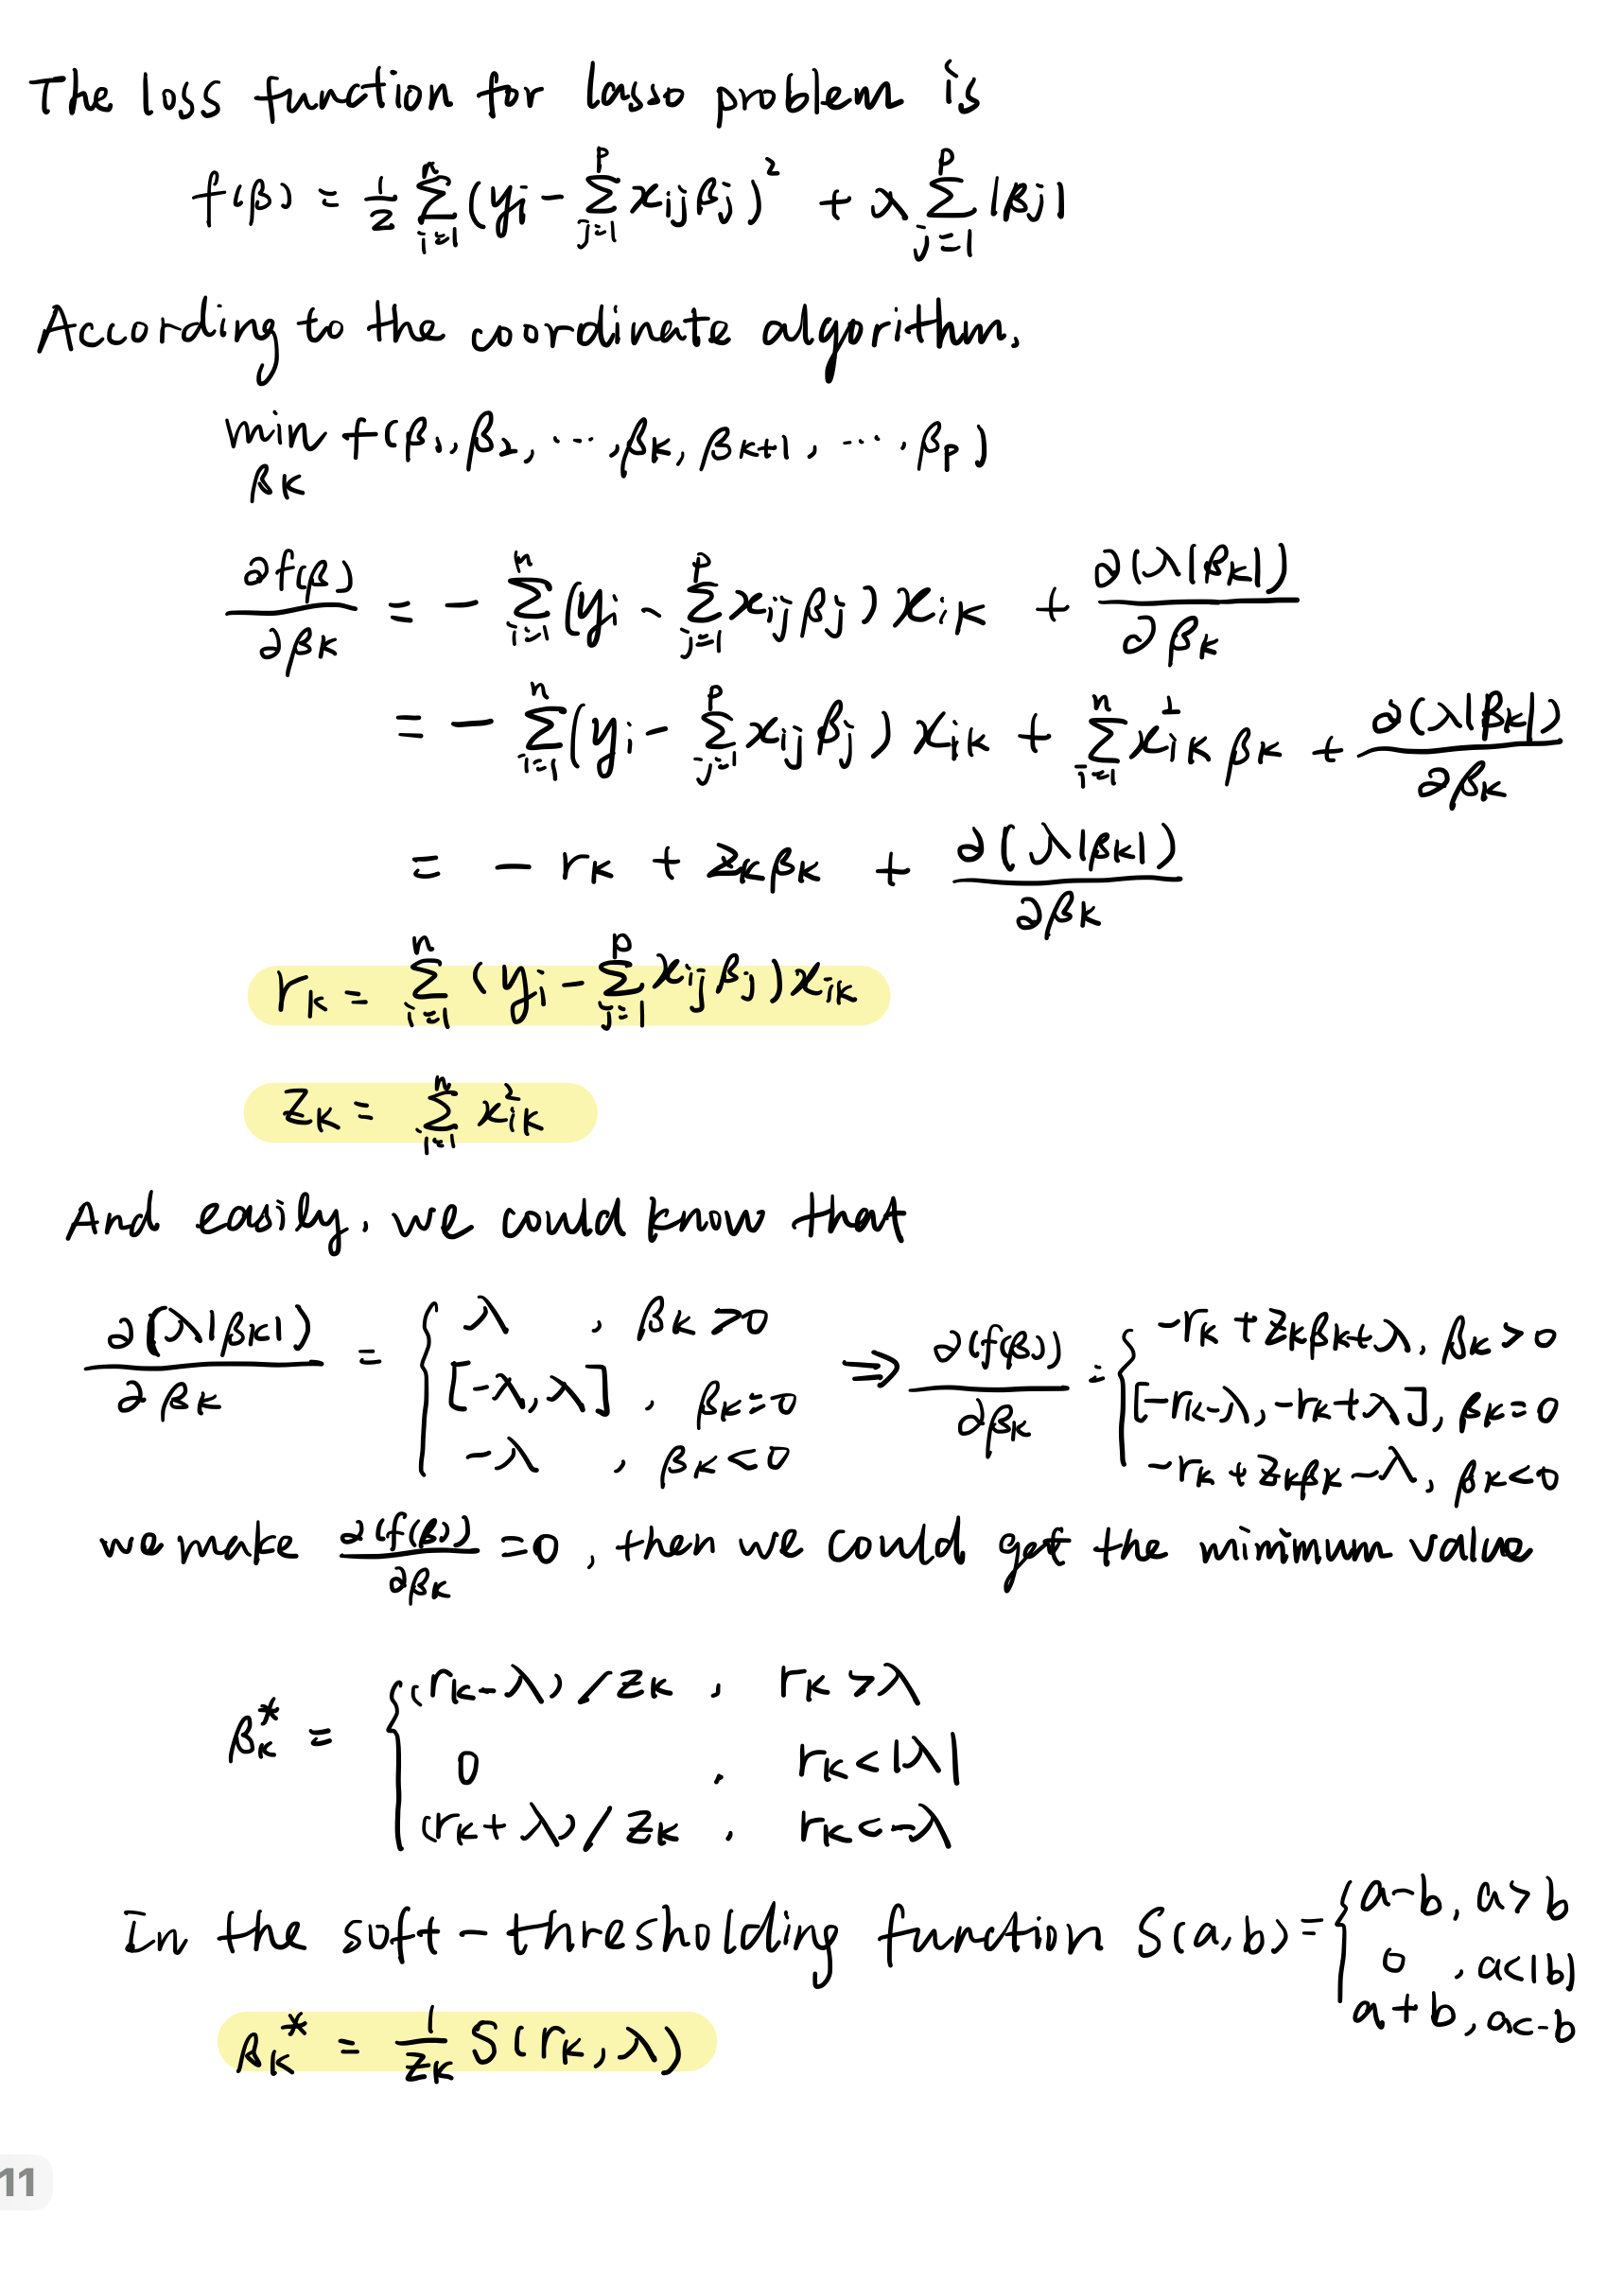 The loss function for lasso problem is
f(β) = 1/2 Σ_{i=1}^{n} (y_i − Σ_{j=1}^{p} x_{ij} β_j)^2 + λ Σ_{j=1}^{p} |β_j|
According to the coordinate algorithm.
min_{β_k} f(β_1, β_2, ..., β_k, β_{k+1}, ..., β_p)
∂f(β)/∂β_k = − Σ_{i=1}^{n} (y_i − Σ_{j=1}^{p} x_{ij} β_j) x_{ik} + ∂(λ|β_k|)/∂β_k
= − Σ_{i=1}^{n} (y_i − Σ_{j=1}^{p} x_{ij} β_j) x_{ik} + Σ_{i=1}^{n} x_{ik}^2 β_k + ∂(λ|β_k|)/∂β_k
= − r_k + z_k β_k + ∂(λ|β_k|)/∂β_k
r_k = Σ_{i=1}^{n} (y_i − Σ_{j=1}^{p} x_{ij} β_j) x_{ik}
z_k = Σ_{i=1}^{n} x_{ik}^2
And easily, we could know that
∂(λ|β_k|)/∂β_k = { λ, β_k > 0; [−λ, λ], β_k = 0; −λ, β_k < 0 ⇒ ∂(f(β))/∂β_k = { −r_k + z_k β_k + λ, β_k > 0; [−r_k − λ, −r_k + λ], β_k = 0; −r_k + z_k β_k − λ, β_k < 0
we make ∂(f(β))/∂β_k = 0, then we could get the minimum value
β_k^* = { (r_k − λ)/z_k, r_k > λ; 0, r_k < |λ|; (r_k + λ)/z_k, r_k < −λ
In the soft-thresholding function S(a,b) = { a−b, a > b; 0, a < |b|; a+b, a < −b
β_k^* = 1/z_k S(r_k, λ)
11